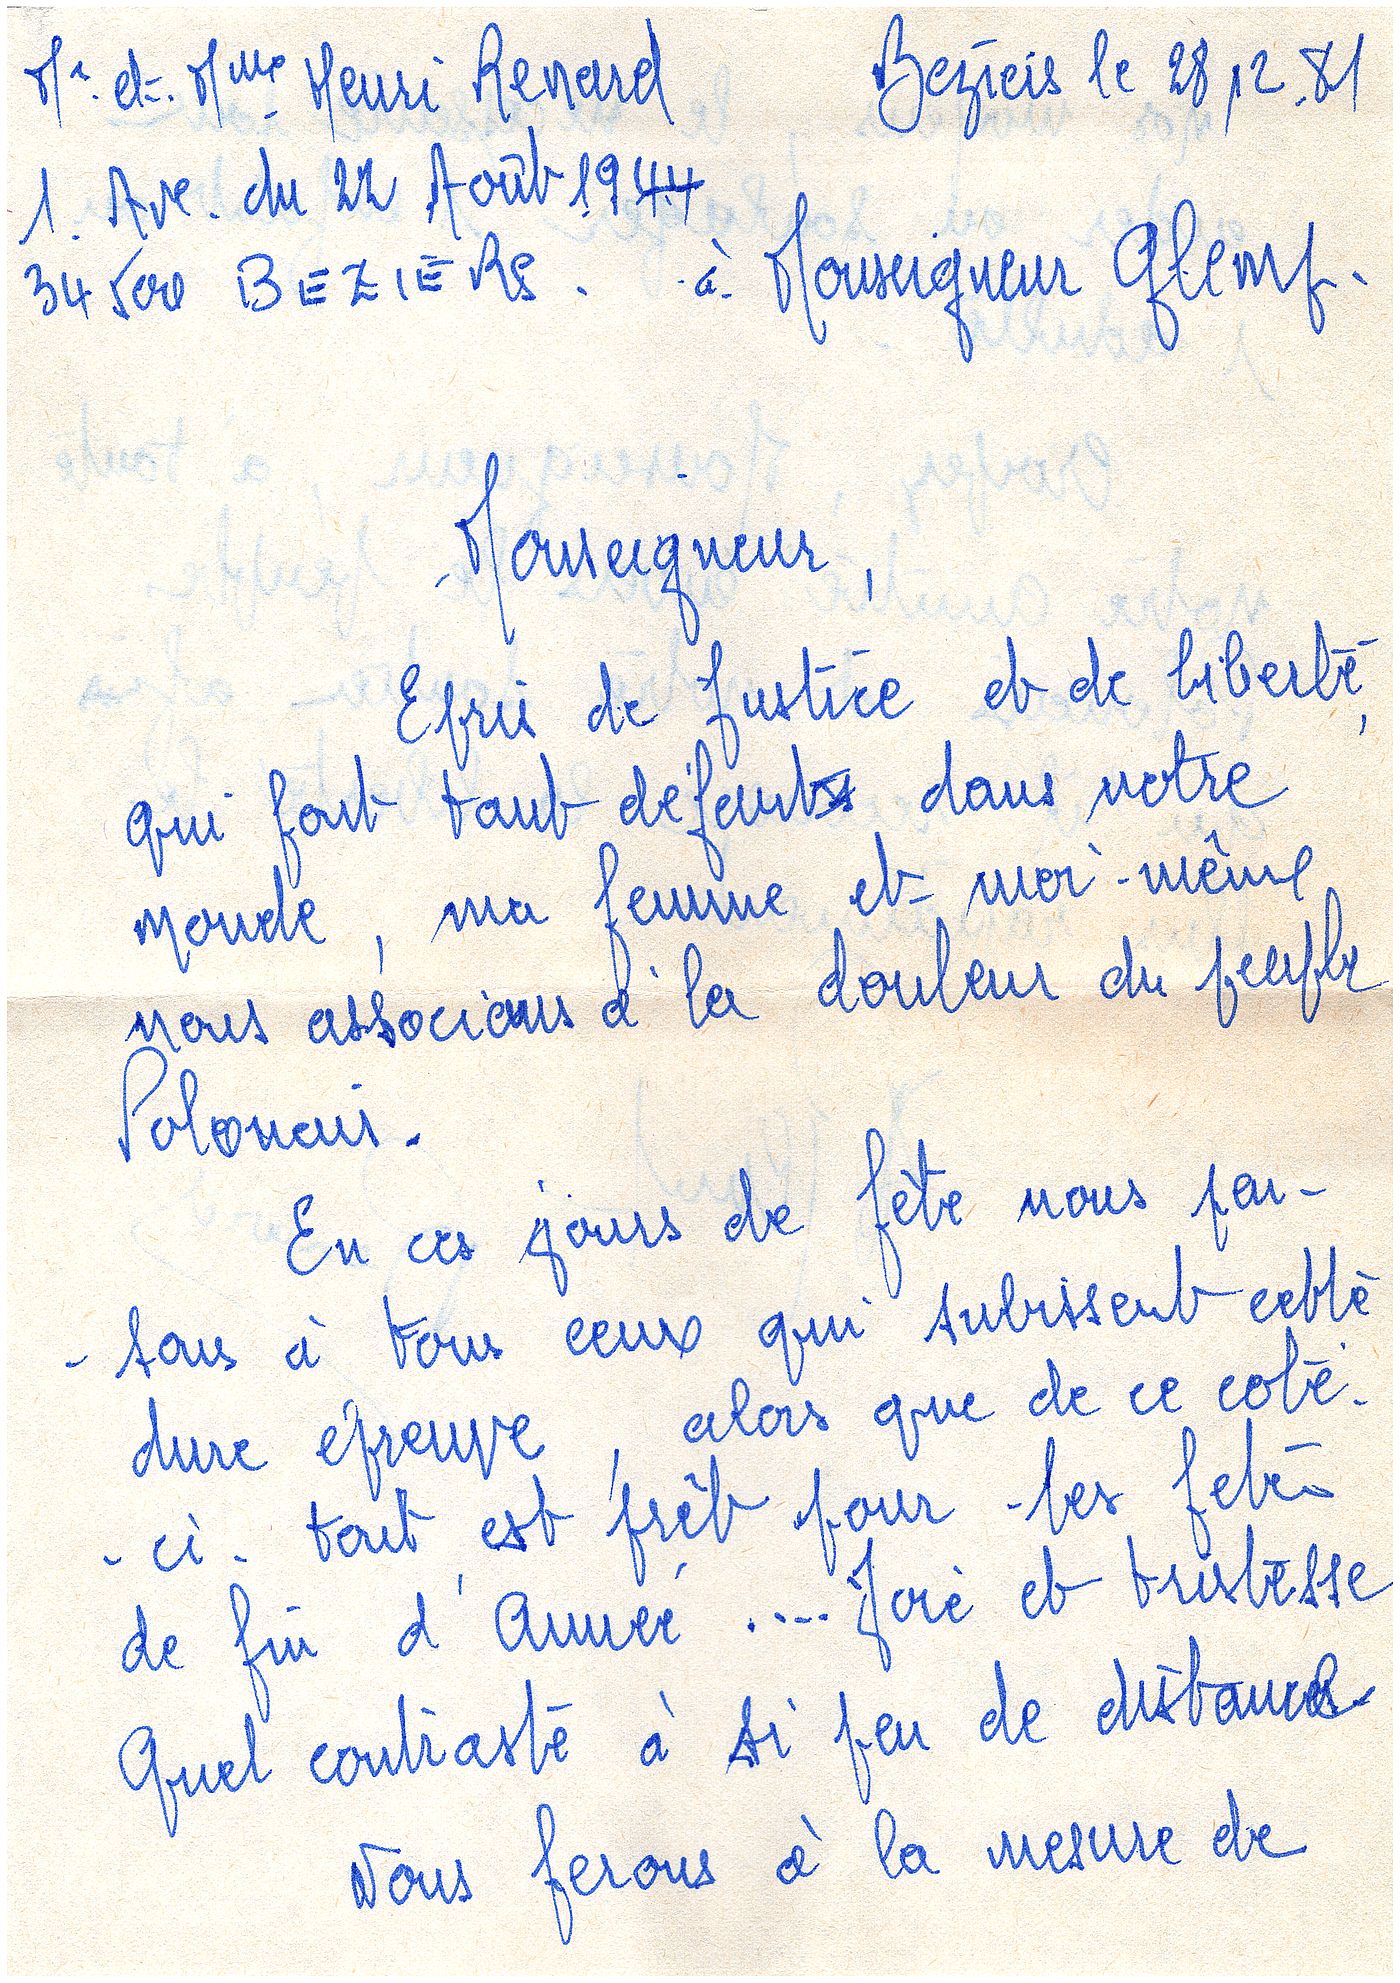 Mr. et. Mme Henri Renard
Beziers le 28.12.81
1. Ave. du 22 Août 1944
34500 BEZIERS.
à Monseigneur Glemp.
Monseigneur,
Epris de Justice et de liberté,
qui font tant défaut dans notre
monde, ma femme et moi-même
nous associons à la douleur du peuple
Polonais.
En ces jours de fête nous pen-
-sons à tous ceux qui subissent cette
dure épreuve, alors que de ce coté-
-ci- tout est prêt pour les fetes
de fin d'Année .... Joie et tristesse
Quel contraste à si peu de distance.
Nous ferons à la mesure de